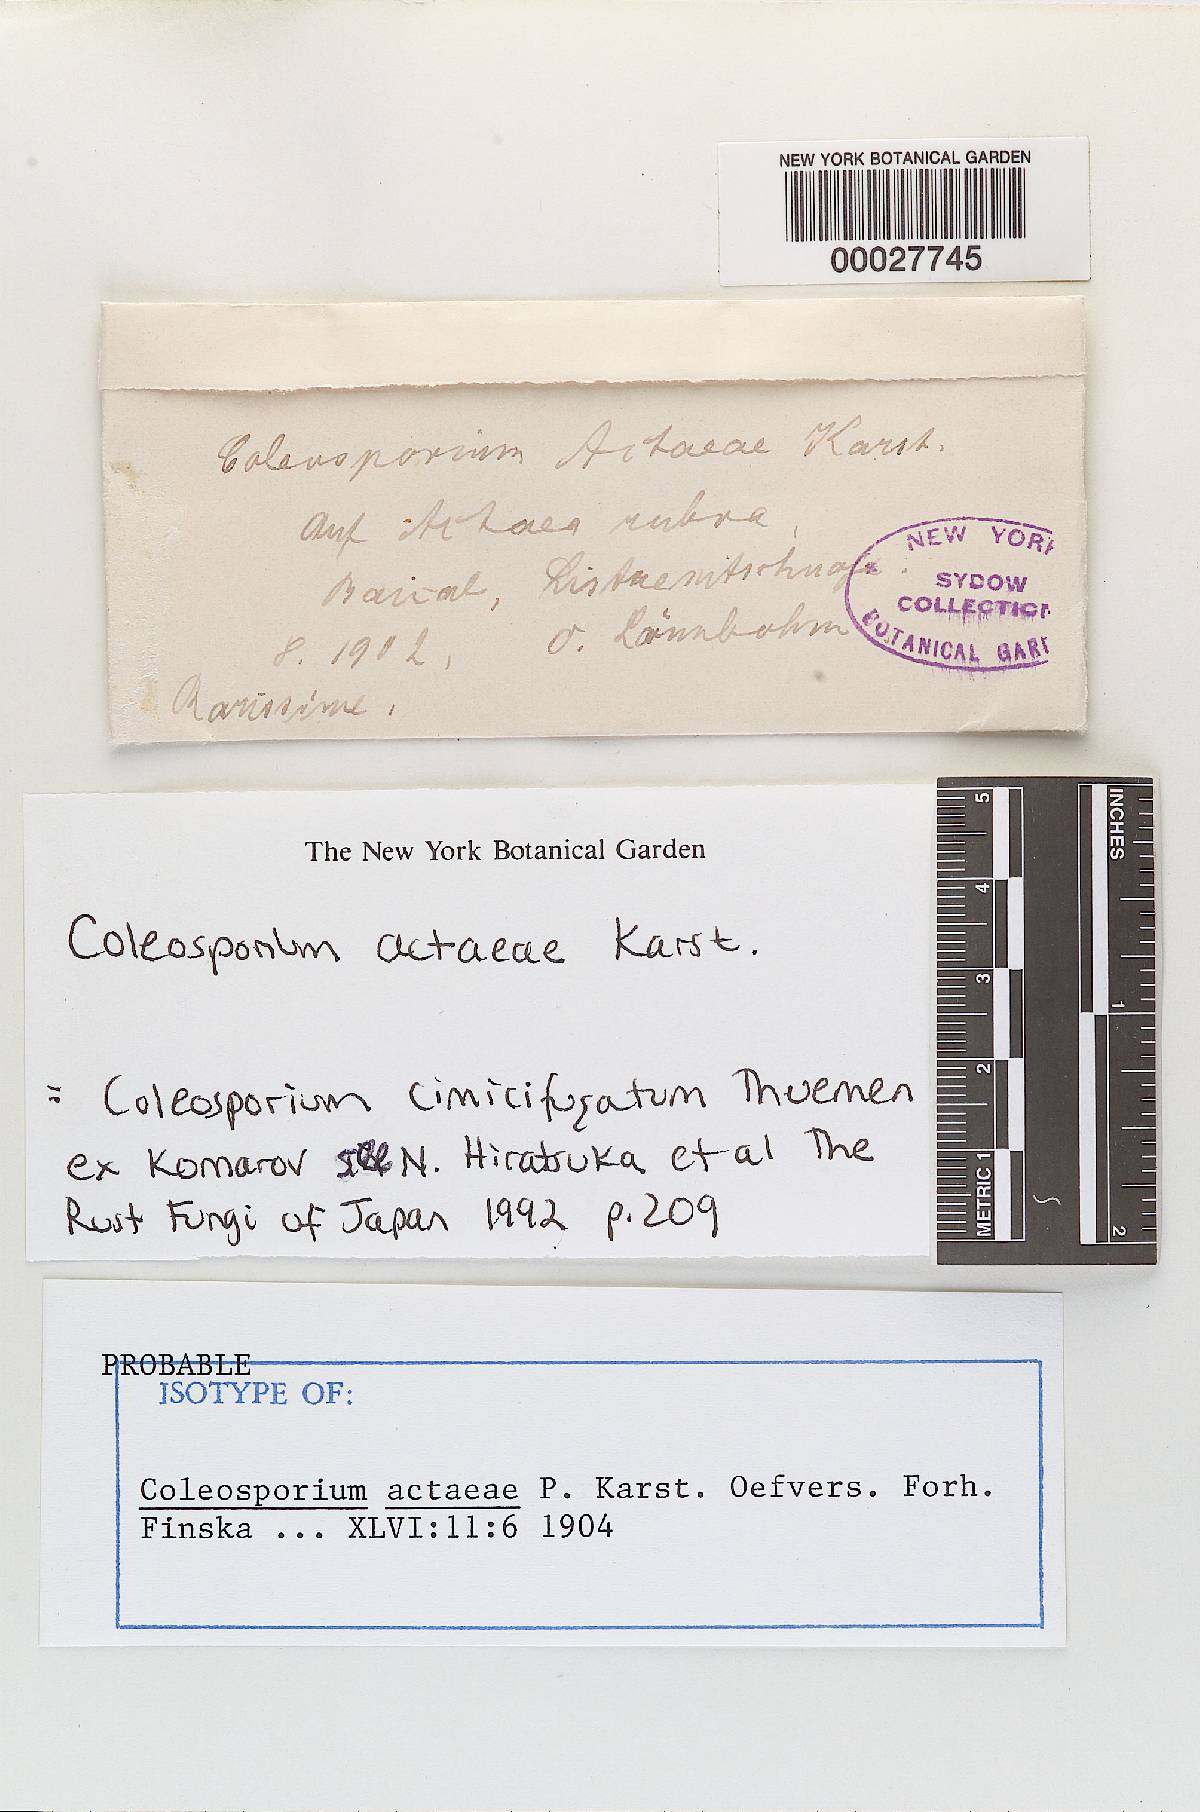 NEW YORK BOTANICAL GARDEN
00027745
Coleosporium Actaeae Karst.
Auf Actaea rubra,
Baical,
8. 1902, O. Lönnbohm
Rarissime.
NEW YORK
SYDOW
COLLECTION
BOTANICAL GARD
The New York Botanical Garden
Coleosporium actaeae Karst.
= Coleosporium cimicifugatum Thuemen
ex Komarov see N. Hiratsuka et al The
Rust Fungi of Japan 1992 p.209
INCHES
1
2
5
4
3
2
METRIC 1
PROBABLE
ISOTYPE OF:
Coleosporium actaeae P. Karst. Oefvers. Forh.
Finska ... XLVI:11:6 1904